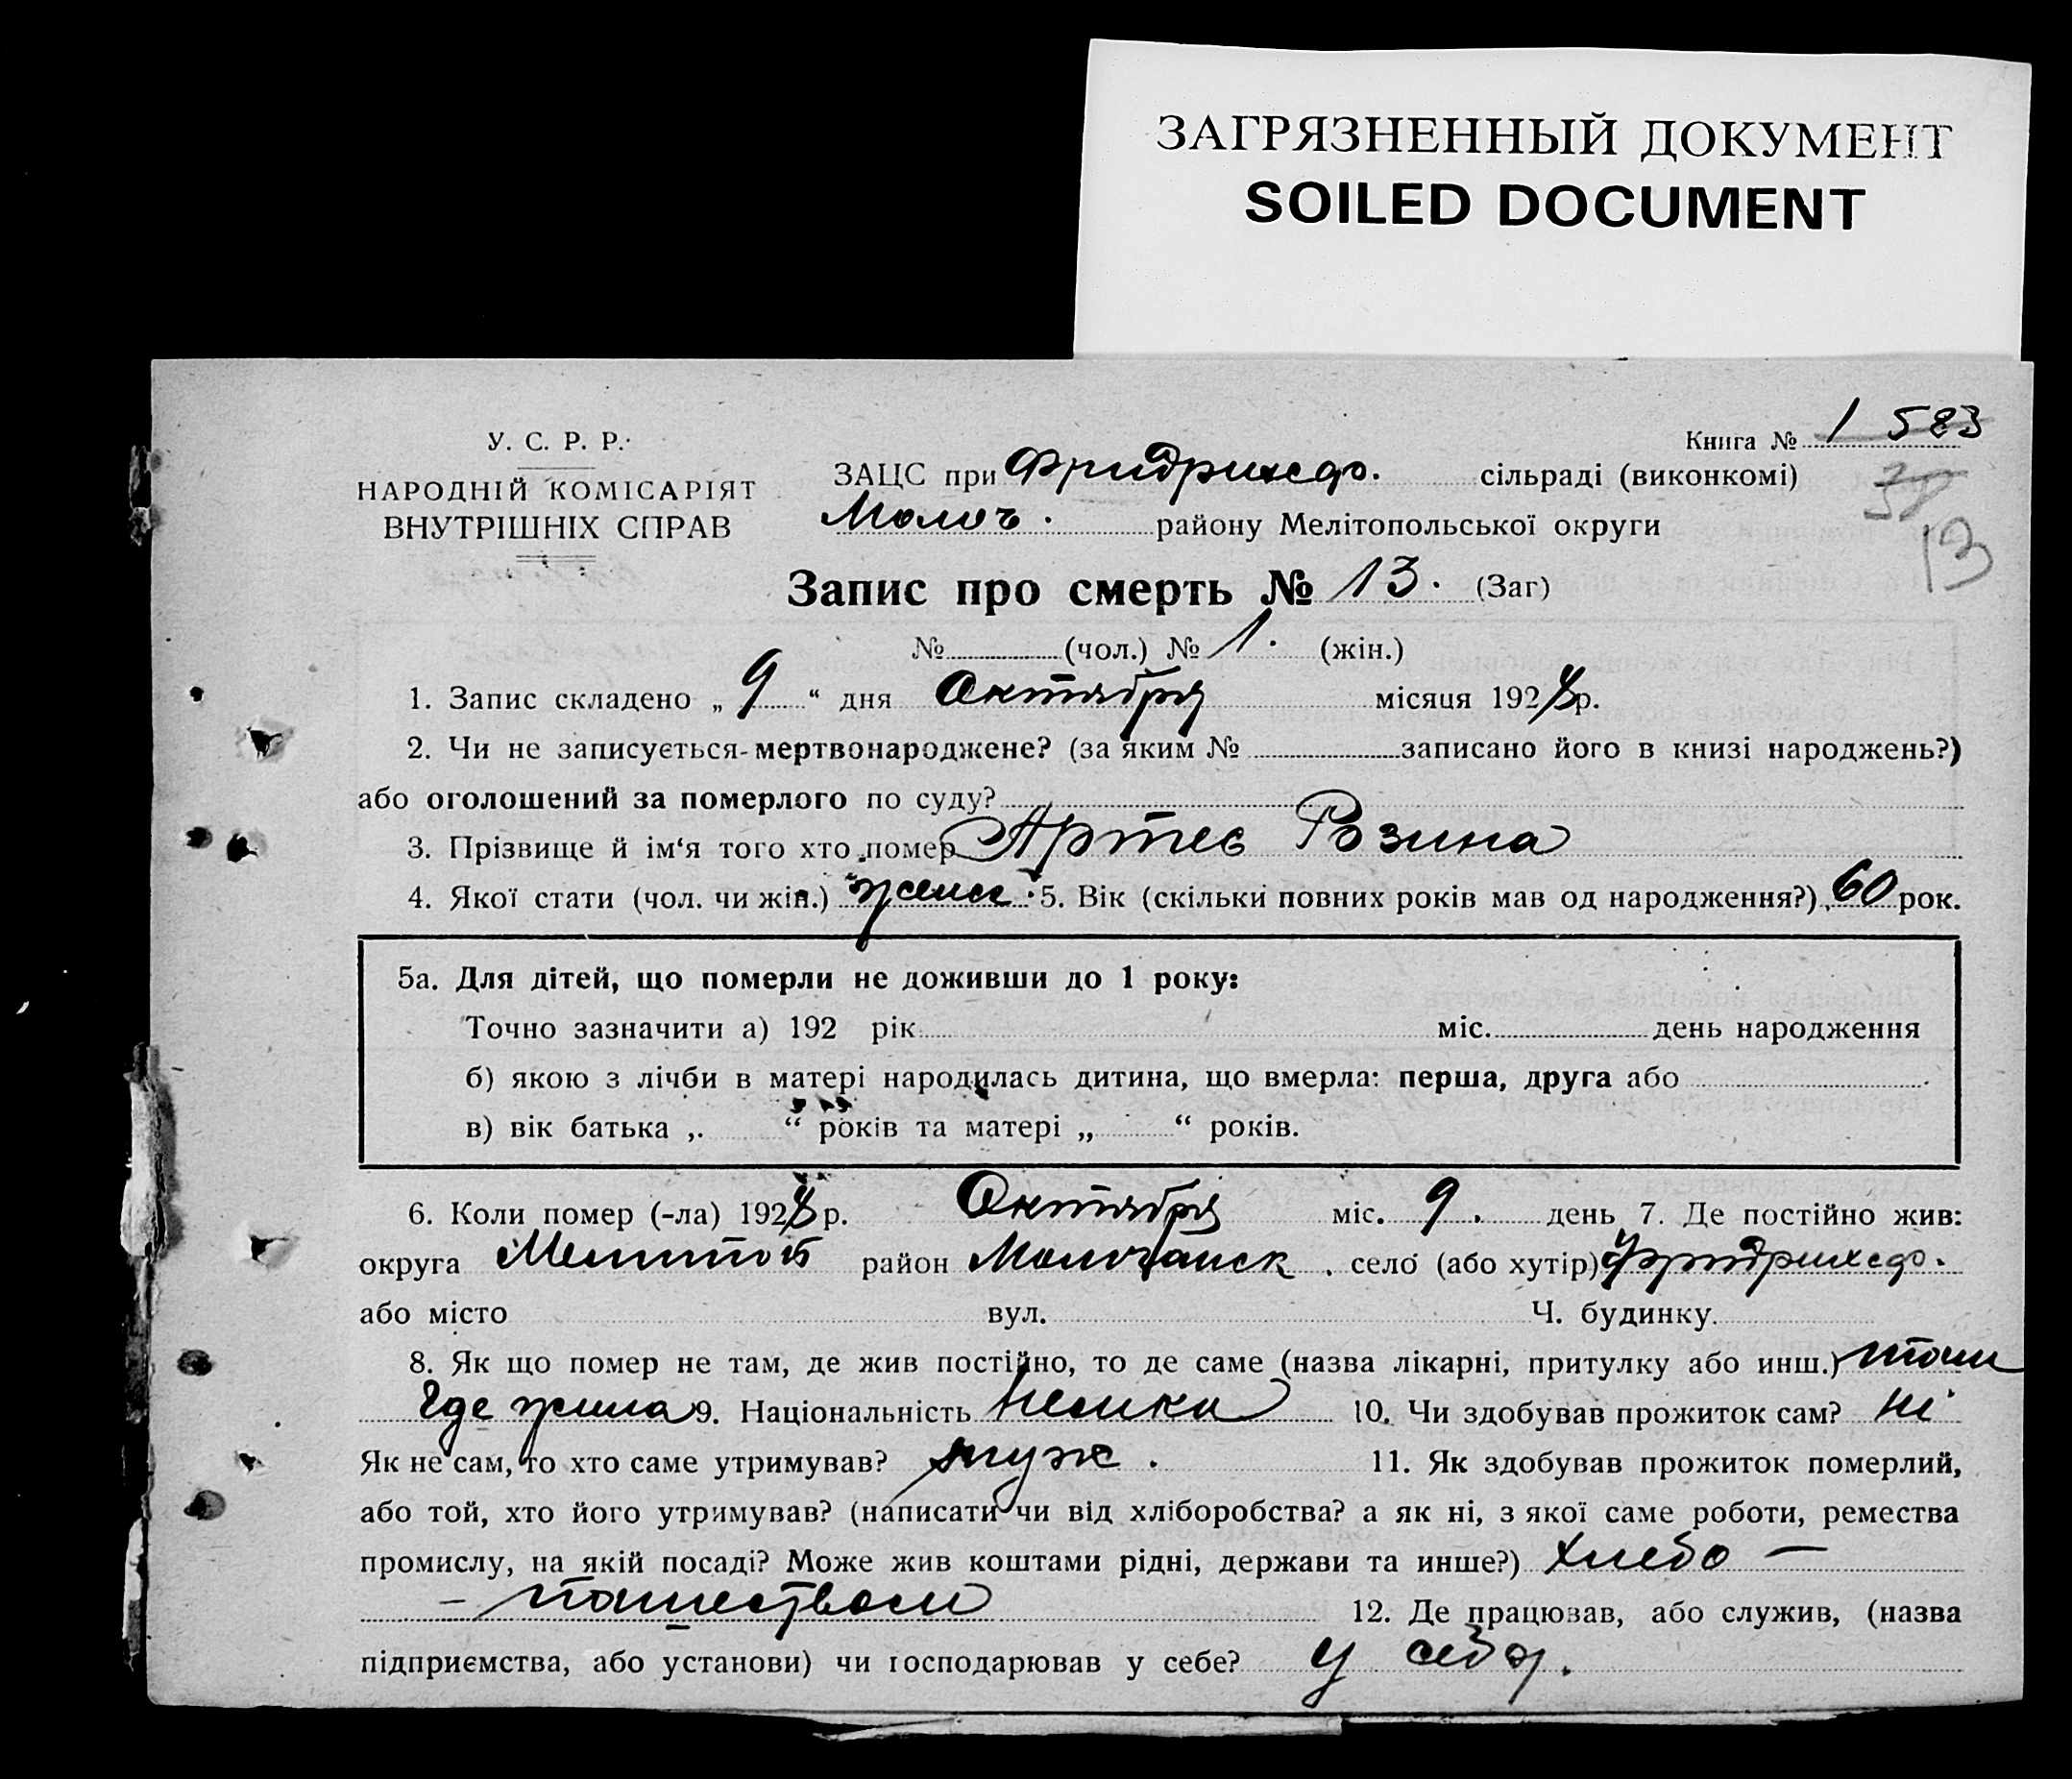 ЗАГРЯЗНЕННЫЙ ДОКУМЕНТ
SOILED DOCUMENT
У. С. Р. Р.
НАРОДНІЙ КОМІСАРІЯТ
ВНУТРІШНІХ СПРАВ
Книга № 1 583
38
13
ЗАЦС при Фридрихсдо. сільраді (виконкомі)
Молоч. району Мелітопольської округи
Запис про смерть № 13. (Заг)
№ (чол.) № 1. (жін.)
1. Запис складено „ 9 “ дня Октября місяця 1928 р.
2. Чи не записується-мертвонароджене? (за яким № записано його в книзі народжень?)
або оголошений за померлого по суду?
3. Прізвище й ім‘я того хто помер Артес Розина
4. Якої стати (чол. чи жін.) женск. 5. Вік (скільки повних років мав од народження?) 60 рок.
5а. Для дітей, що померли не доживши до 1 року:
Точно зазначити а) 192 рік міс. день народження
б) якою з лічби в матері народилась дитина, що вмерла: перша, друга або
в) вік батька „ “ років та матері „ “ років.
6. Коли помер (-ла) 1928 р. Октября міс. 9. день 7. Де постійно жив:
округа Мелитоп район Молочанск. село (або хутір) Фридрихсдо.
або місто вул. Ч. будинку
8. Як що помер не там, де жив постійно, то де саме (назва лікарні, притулку або инш.) там
где жила 9. Національність Немка 10. Чи здобував прожиток сам? ні
Як не сам, то хто саме утримував? муж. 11. Як здобував прожиток померлий,
або той, хто його утримував? (написати чи від хліборобства? а як ні, з якої саме роботи, ремества
промислу, на якій посаді? Може жив коштами рідні, держави та инше?) Хлебо —
— пашеством 12. Де працював, або служив, (назва
підприємства, або установи) чи господарював у себе? у себя.